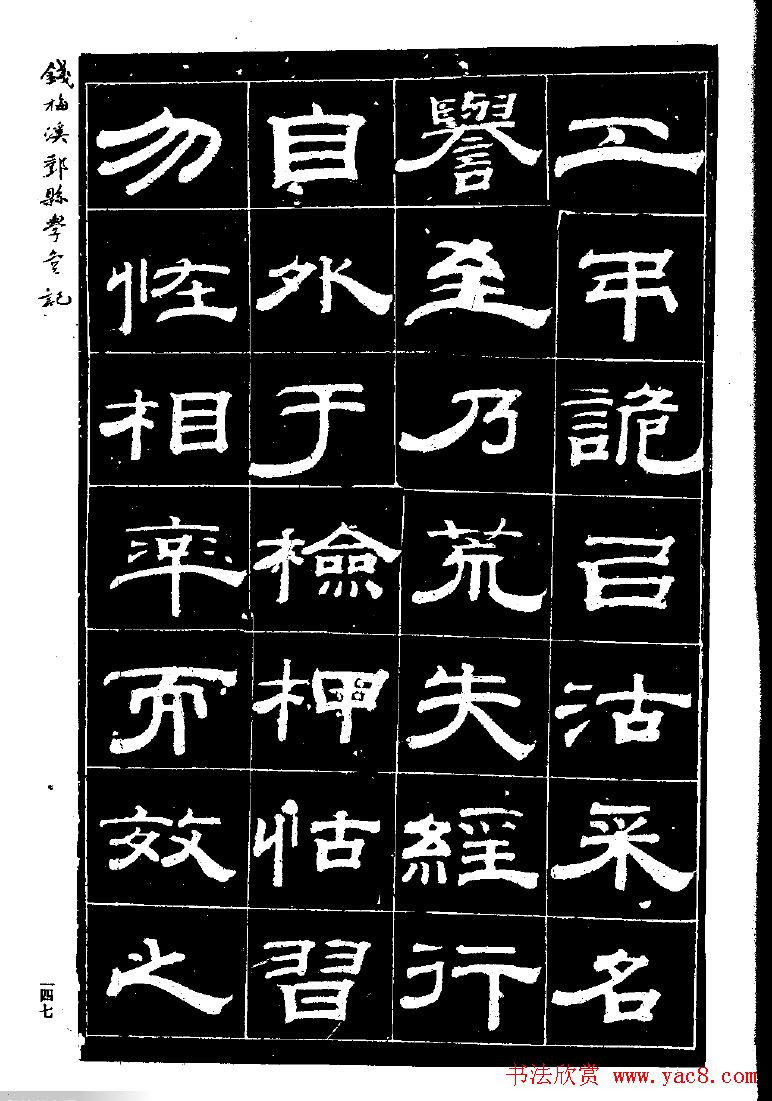 工弔詭㠯沽采名
譽至乃荒失經行
自外于檢柙怙習
勿恠相率而效之
錢梅溪鄞縣學宮記
一四七
书法欣赏 www.yac8.com